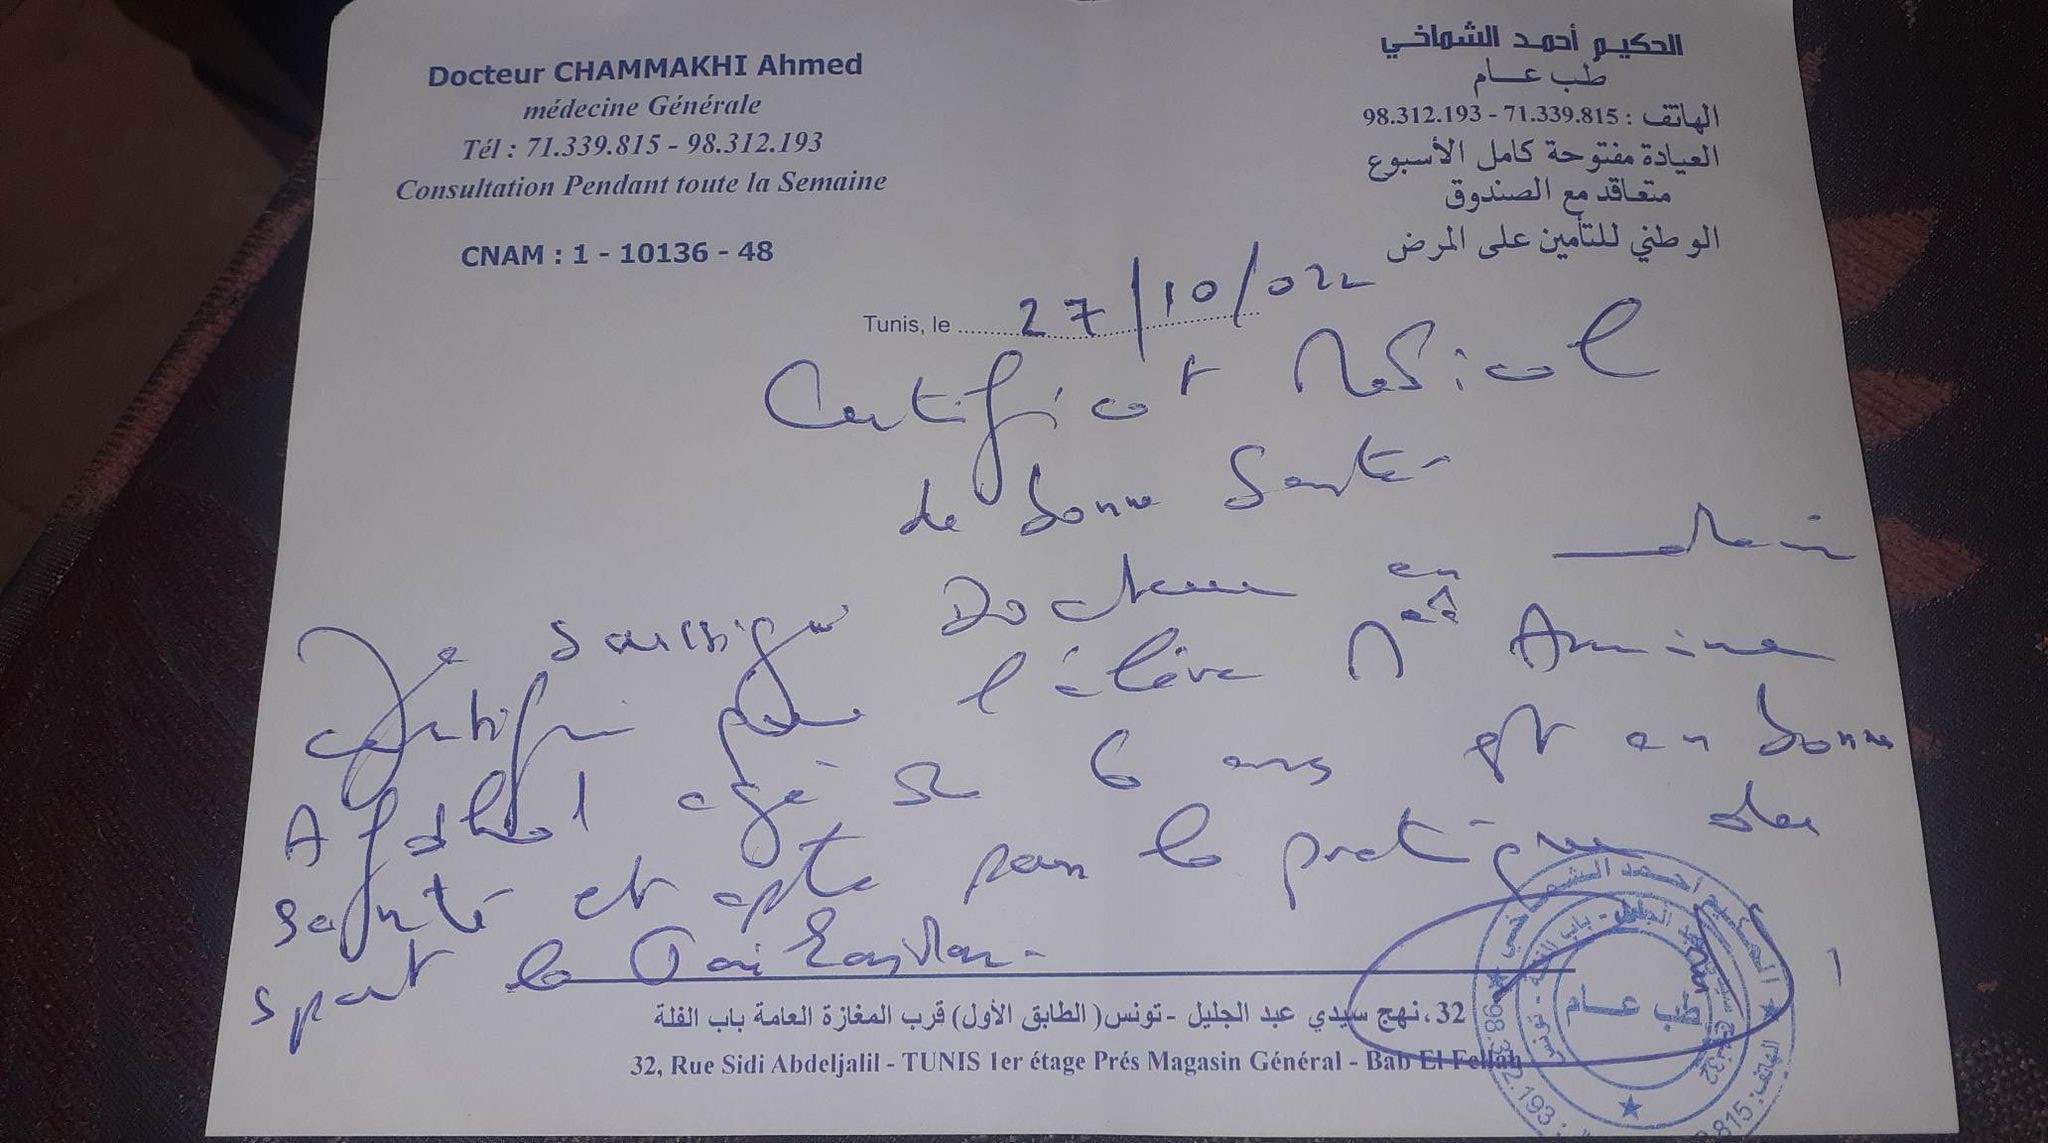 Docteur CHAMMAKHI Ahmed
médecine Générale
Tél : 71.339.815 - 98.312.193
Consultation Pendant toute la Semaine
CNAM : 1 - 10136 - 48
الحكيم أحمد الشماخي
طب عام
الهاتف : 71.339.815 - 98.312.193
العيادة مفتوحة كامل الأسبوع
متعاقد مع الصندوق
الوطني للتأمين على المرض
Tunis, le 27/10/022
Certificat Médical
de bonne Santé
Je soussigné Docteur en
certifie que l'élève Med Amine
agé de 6 ans est en bonne
santé et apte pour la pratique de
sport le Taikondo
32، نهج سيدي عبد الجليل - تونس (الطابق الأول) قرب المغازة العامة باب الفلة
32, Rue Sidi Abdeljalil - TUNIS 1er étage Prés Magasin Général - Bab El Fellah
الحكيم أحمد الشماخي
طب عام